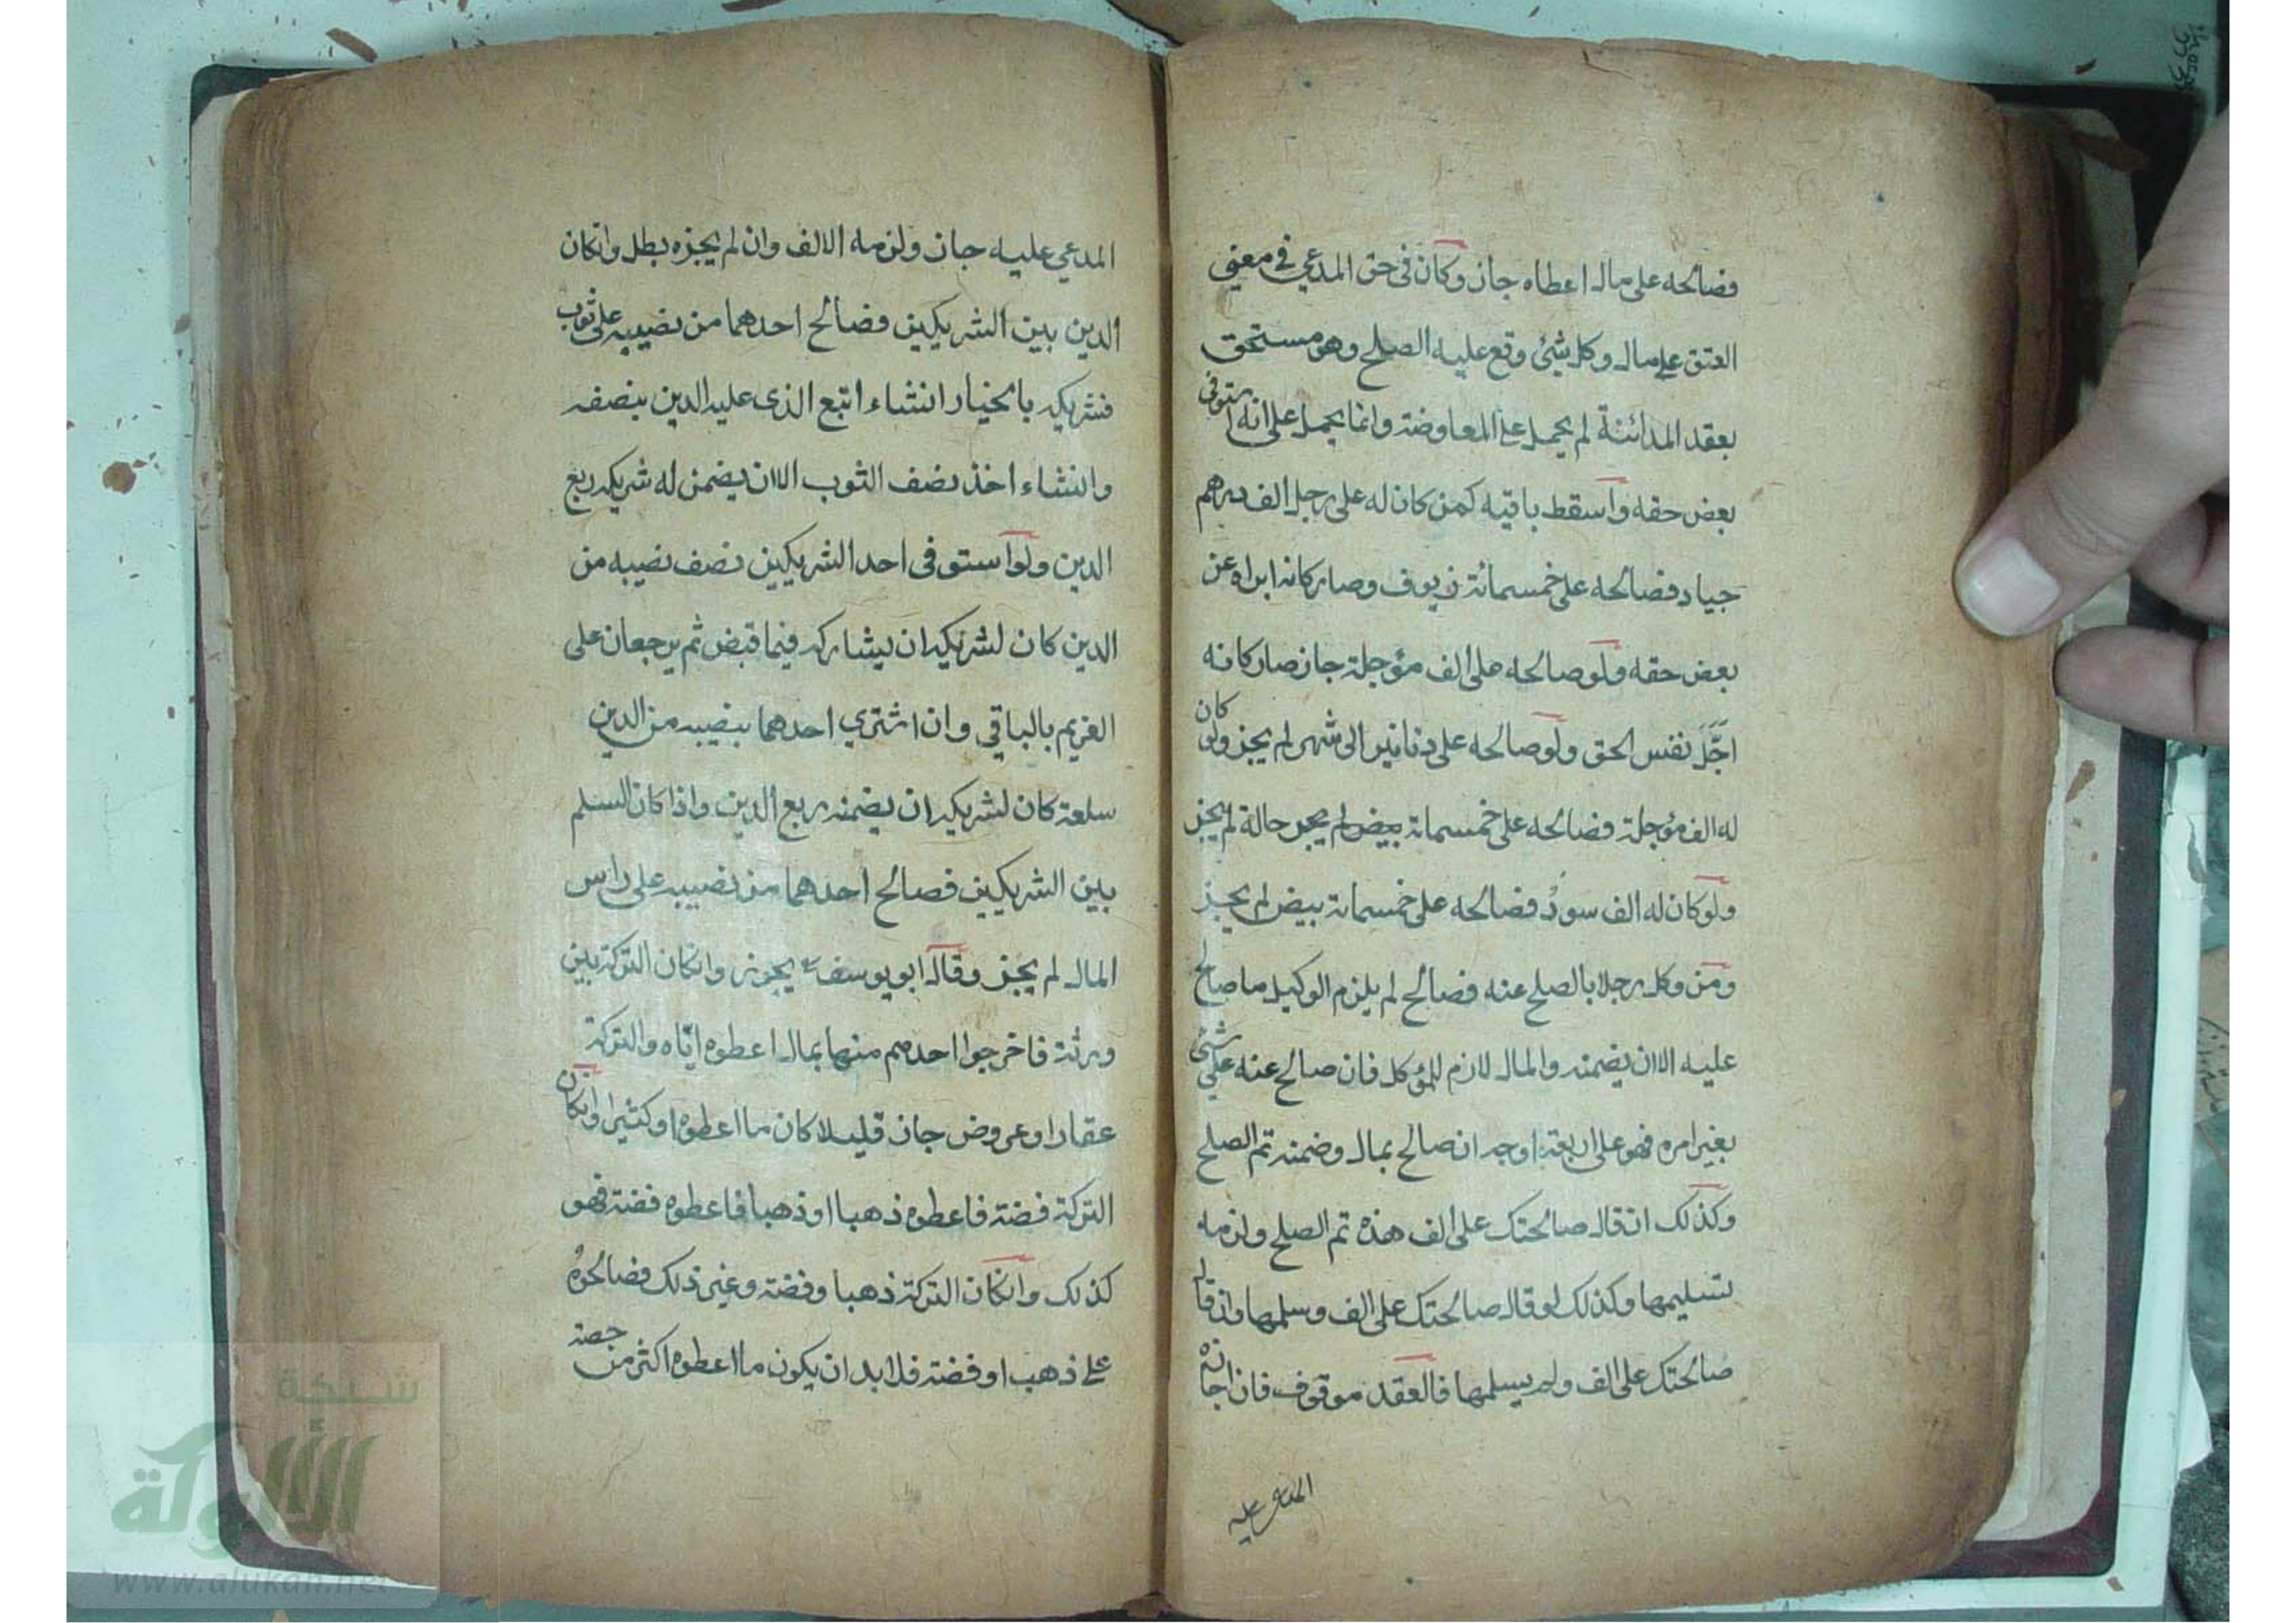 فصالحه على مال اعطاه جاز وكان فى حق المدعي فى معنى
العتق على مال وكل شئ وقع عليه الصلح وهو مستحق
بعقد المداينة لم يحمل على المعاوضة وانما يحمل على انه استوفى
بعض حقه واسقط باقيه كمن كان له على رجل الف درهم
جياد فصالحه على خمسمائة زيوف وصار كانه ابراه عن
بعض حقه ولو صالحه على الف مؤجلة جاز صار كانه
اجّل نفس الحق ولو صالحه على دنانير الى شهر لم يجز ولو كان
له الف مؤجلة فصالحه على خمسمائة بيض لم يجز حالة لم يجز
ولو كان له الف سود فصالحه على خمسمائة بيض لم يجز
ومن وكل رجلا بالصلح عنه فصالح لم يلزم الوكيل ما صالح
عليه الا ان يضمنه والمال لازم للمؤكل فان صالح عنه على شئ
بغير امره فهو على اربعة اوجه ان صالح بمال وضمنه تم الصلح
وكذلك ان قال صالحتك على الف هذه تم الصلح ولزمه
تسليمها وكذلك لو قال صالحتك على الف وسلمها وان قال
صالحتك على الف ولم يسلمها فالعقد موقوف فان اجازه
المدعى عليه
المدعي عليه جاز ولزمه الالف وان لم يجزه بطل وانكان
الدين بين الشريكين فصالح احدهما من نصيبه على ثوب
فشريكه بالخيار انشاء اتبع الذى عليه الدين بنصفه
وانشاء اخذ نصف الثوب الا ان يضمن له شريكه ربع
الدين ولو استوفى احد الشريكين نصف نصيبه من
الدين كان لشريكه ان يشاركه فيما قبض ثم يرجعان على
الغريم بالباقي وان اشتري احدهما بنصيبه من الدين
سلعة كان لشريكه ان يضمنه ربع الدين واذا كان السلم
بين الشريكين فصالح احدهما من نصيبه على راس
المال لم يجز وقال ابو يوسف يجوز وانكان التركة بين
ورثة فاخرجوا احدهم منها بمال اعطوه ايّاه والتركة
عقار او عروض جاز قليلا كان ما اعطوه او كثيرا وانكان
التركة فضة فاعطوه ذهبا او ذهبا فاعطوه فضة فهو
كذلك وانكان التركة ذهبا وفضة وغير ذلك فصالحوه
على ذهب او فضة فلا بد ان يكون ما اعطوه اكثر من حصة
شبكة
الألوكة
www.alukah.net